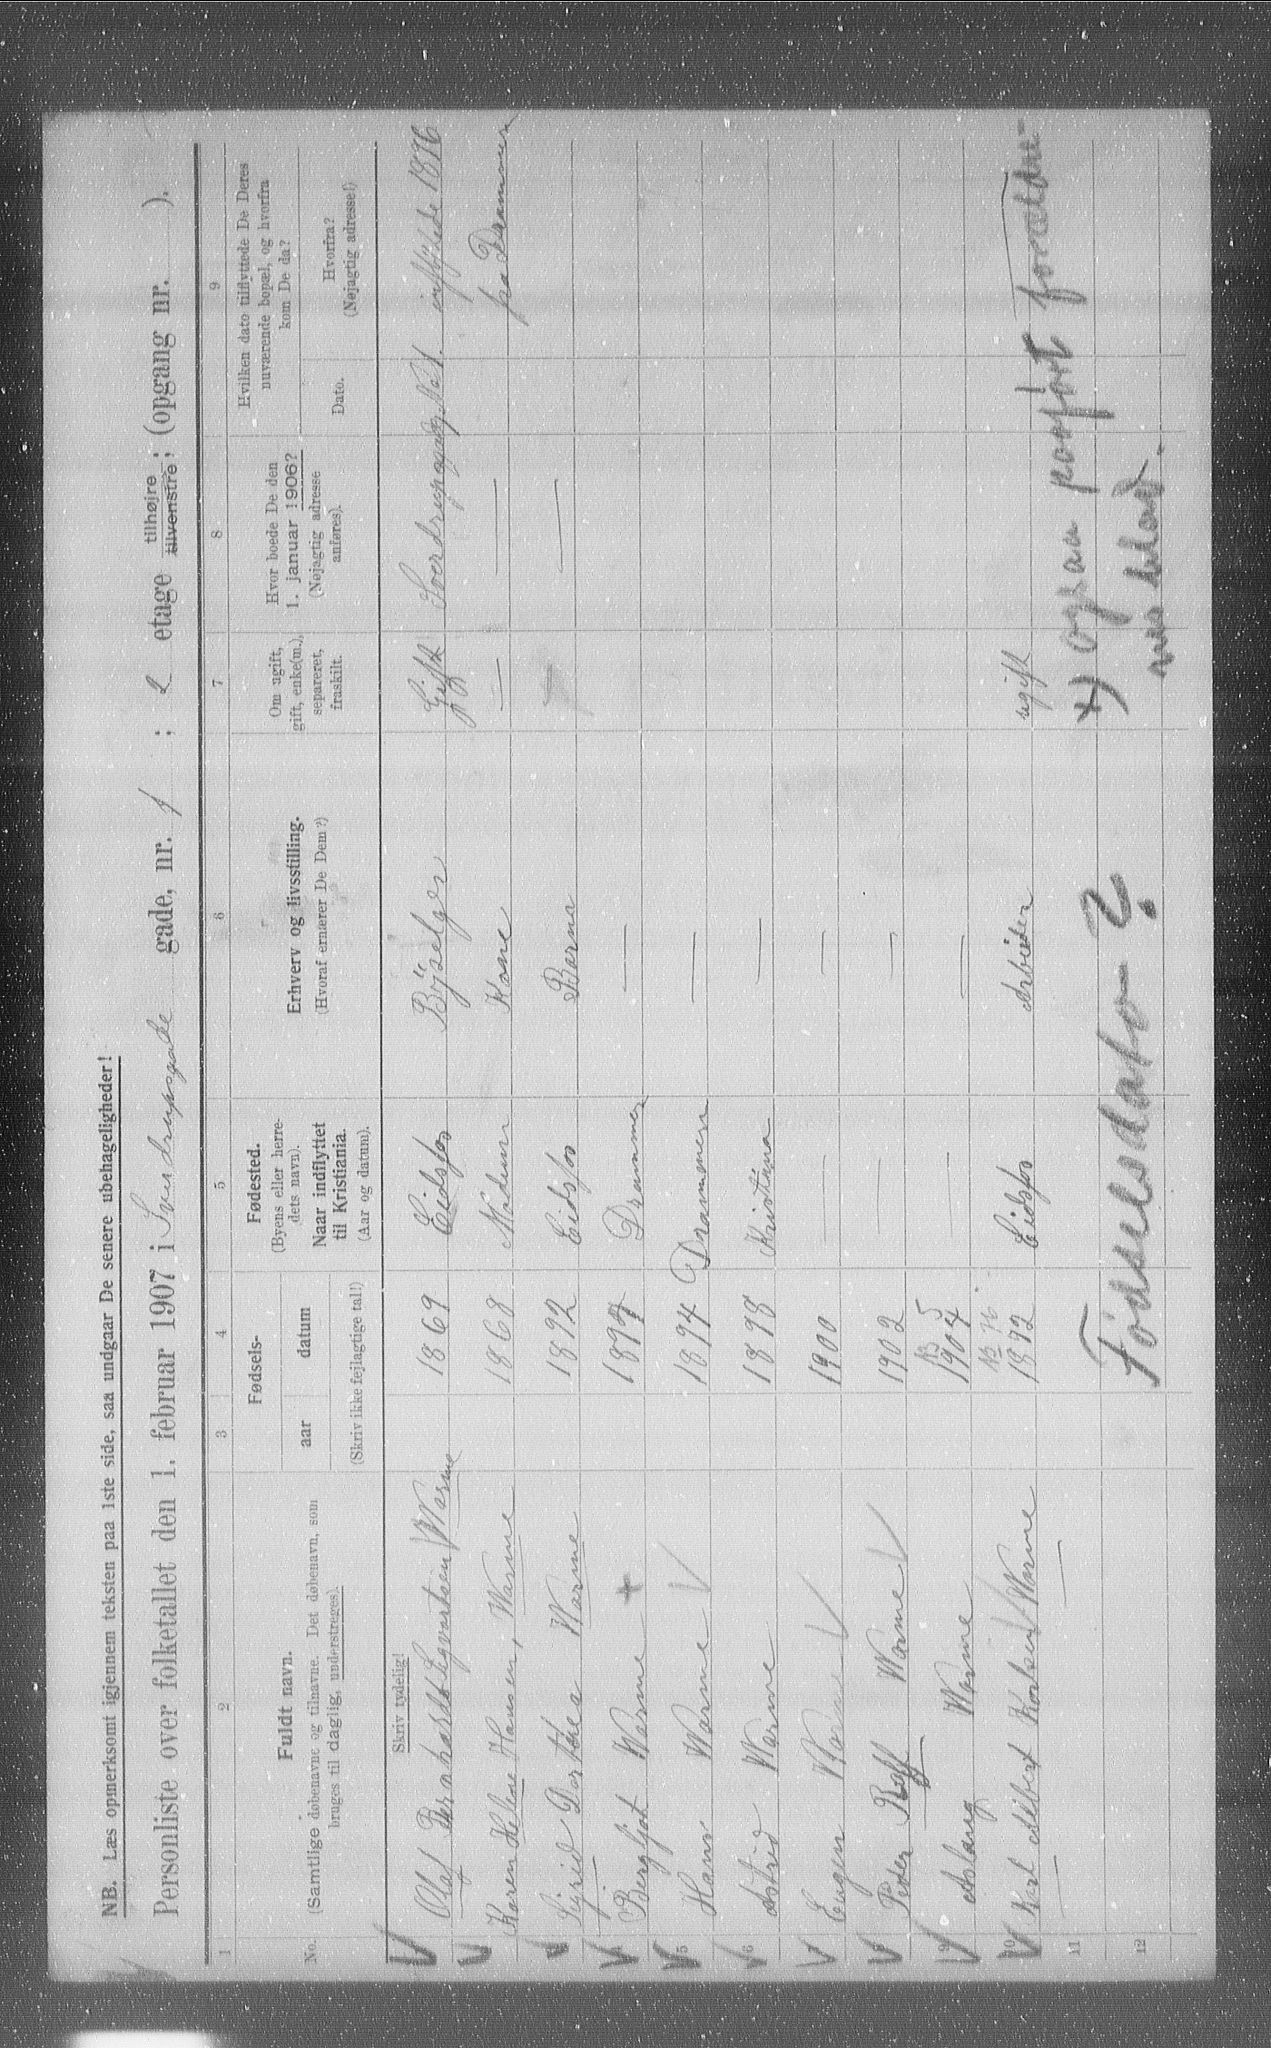 NB. Læs opmerksomt igjennem teksten paa 1ste side, saa undgaar De senere ubehageligheder!
Personliste over folketallet den 1. februar 1907 i Sverdrupsgade gade, nr. 1 ; 2 etage tilhøjre tilvenstre; (opgang nr. ).
1 2 3 4 5 6 7 8 9
No. Fuldt navn. (Samtlige døbenavne og tilnavne. Det døbenavn, som bruges til daglig, understreges).
Fødsels- aar datum (Skriv ikke fejlagtige tal!)
Fødested. (Byens eller herredets navn). Naar indflyttet til Kristiania. (Aar og datum).
Erhverv og livsstilling. (Hvoraf ernærer De Dem?)
Om ugift, gift, enke(m.), separeret, fraskilt.
Hvor boede De den 1. januar 1906? (Nøjagtig adresse anføres).
Hvilken dato tilflyttede De Deres nuværende bopæl, og hvorfra kom De da?
Dato. Hvorfra? (Nøjagtig adresse!)
Skriv tydelig!
Olaf Bernhardt Warme 1869 Eidsfos Gift Sverdrupsg. No 1. inflytede 1896
Karen Helene Hansen, Warme 1868 Modum Kone — — fra Drammen
Sigrid Dorthea Warme 1892 Eidsfos Barna —
Bergljot Warme + 1894 Drammen —
5 Hans Warme 1894 Drammen —
6 Astrid Warme 1898 Kristiania —
Eugen Warme 1900 — —
Peder Rolf Warme 1902 — —
9 Aslaug Warme 1904 — —
10 Karl Albert Karlsen Warme 1872 Eidsfos Arbeider ugift
11
12
Fødselsdato ?
x) ogsaa paaført forældre-